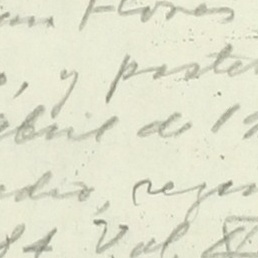 Flores
, y poster
abril de 19
edio, regun
84 Vol. XI